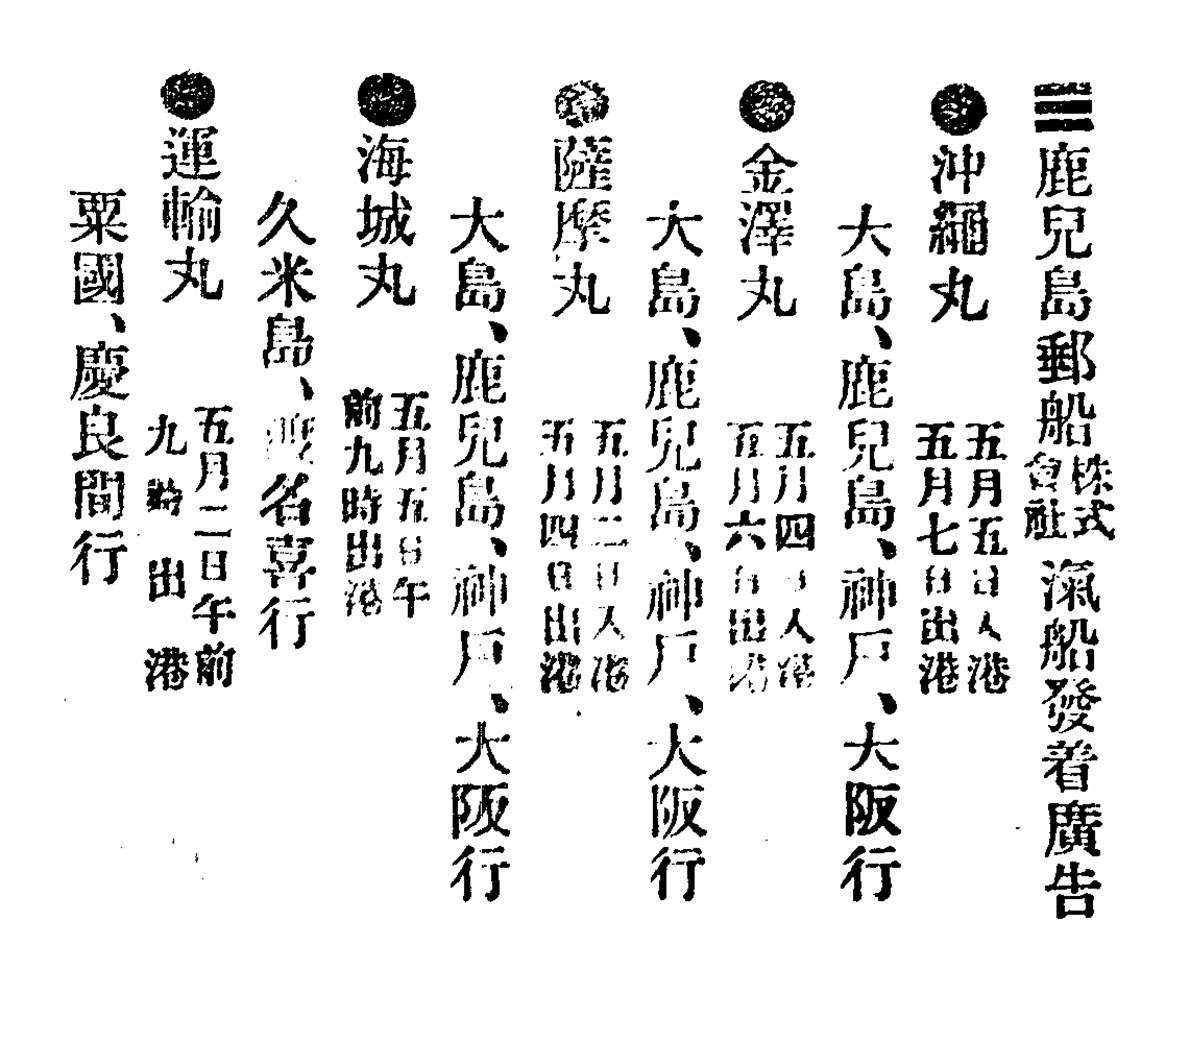 鹿兒島郵船株式會社滊船發着廣告
●沖繩丸
五月五日入港
五月七日出港
大島、鹿兒島、神戶、大阪行
●金澤丸
五月四日入港
五月六日出港
大島、鹿兒島、神戶、大阪行
●薩摩丸
五月二日入港
五月四日出港
大島、鹿兒島、神戶、大阪行
●海城丸
五月五日午
前九時出港
久米島、渡名喜行
●運輸丸
五月二日午前
九時出港
粟國、慶良間行